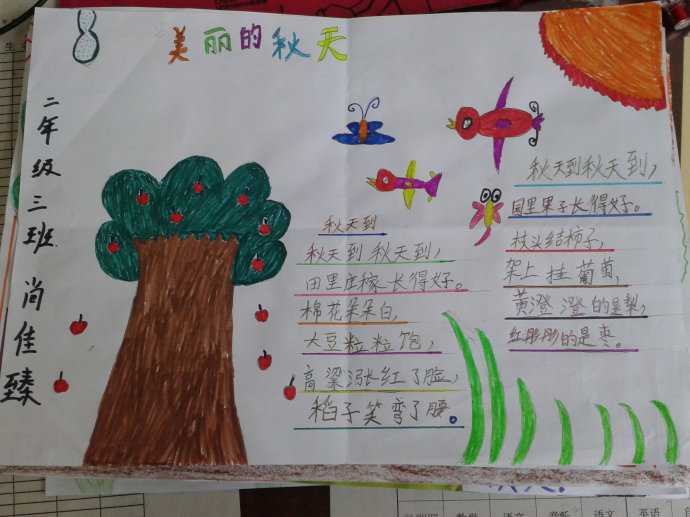 美丽的秋天
二年级三班 尚佳臻
秋天到
秋天到秋天到，
田里庄稼长得好。
棉花朵朵白，
大豆粒粒饱，
高粱涨红了脸，
稻子笑弯了腰。
秋天到秋天到，
园里果子长得好。
枝头结柿子，
架上挂葡萄，
黄澄澄的是梨，
红彤彤的是枣。
数学
语文
语文
英语